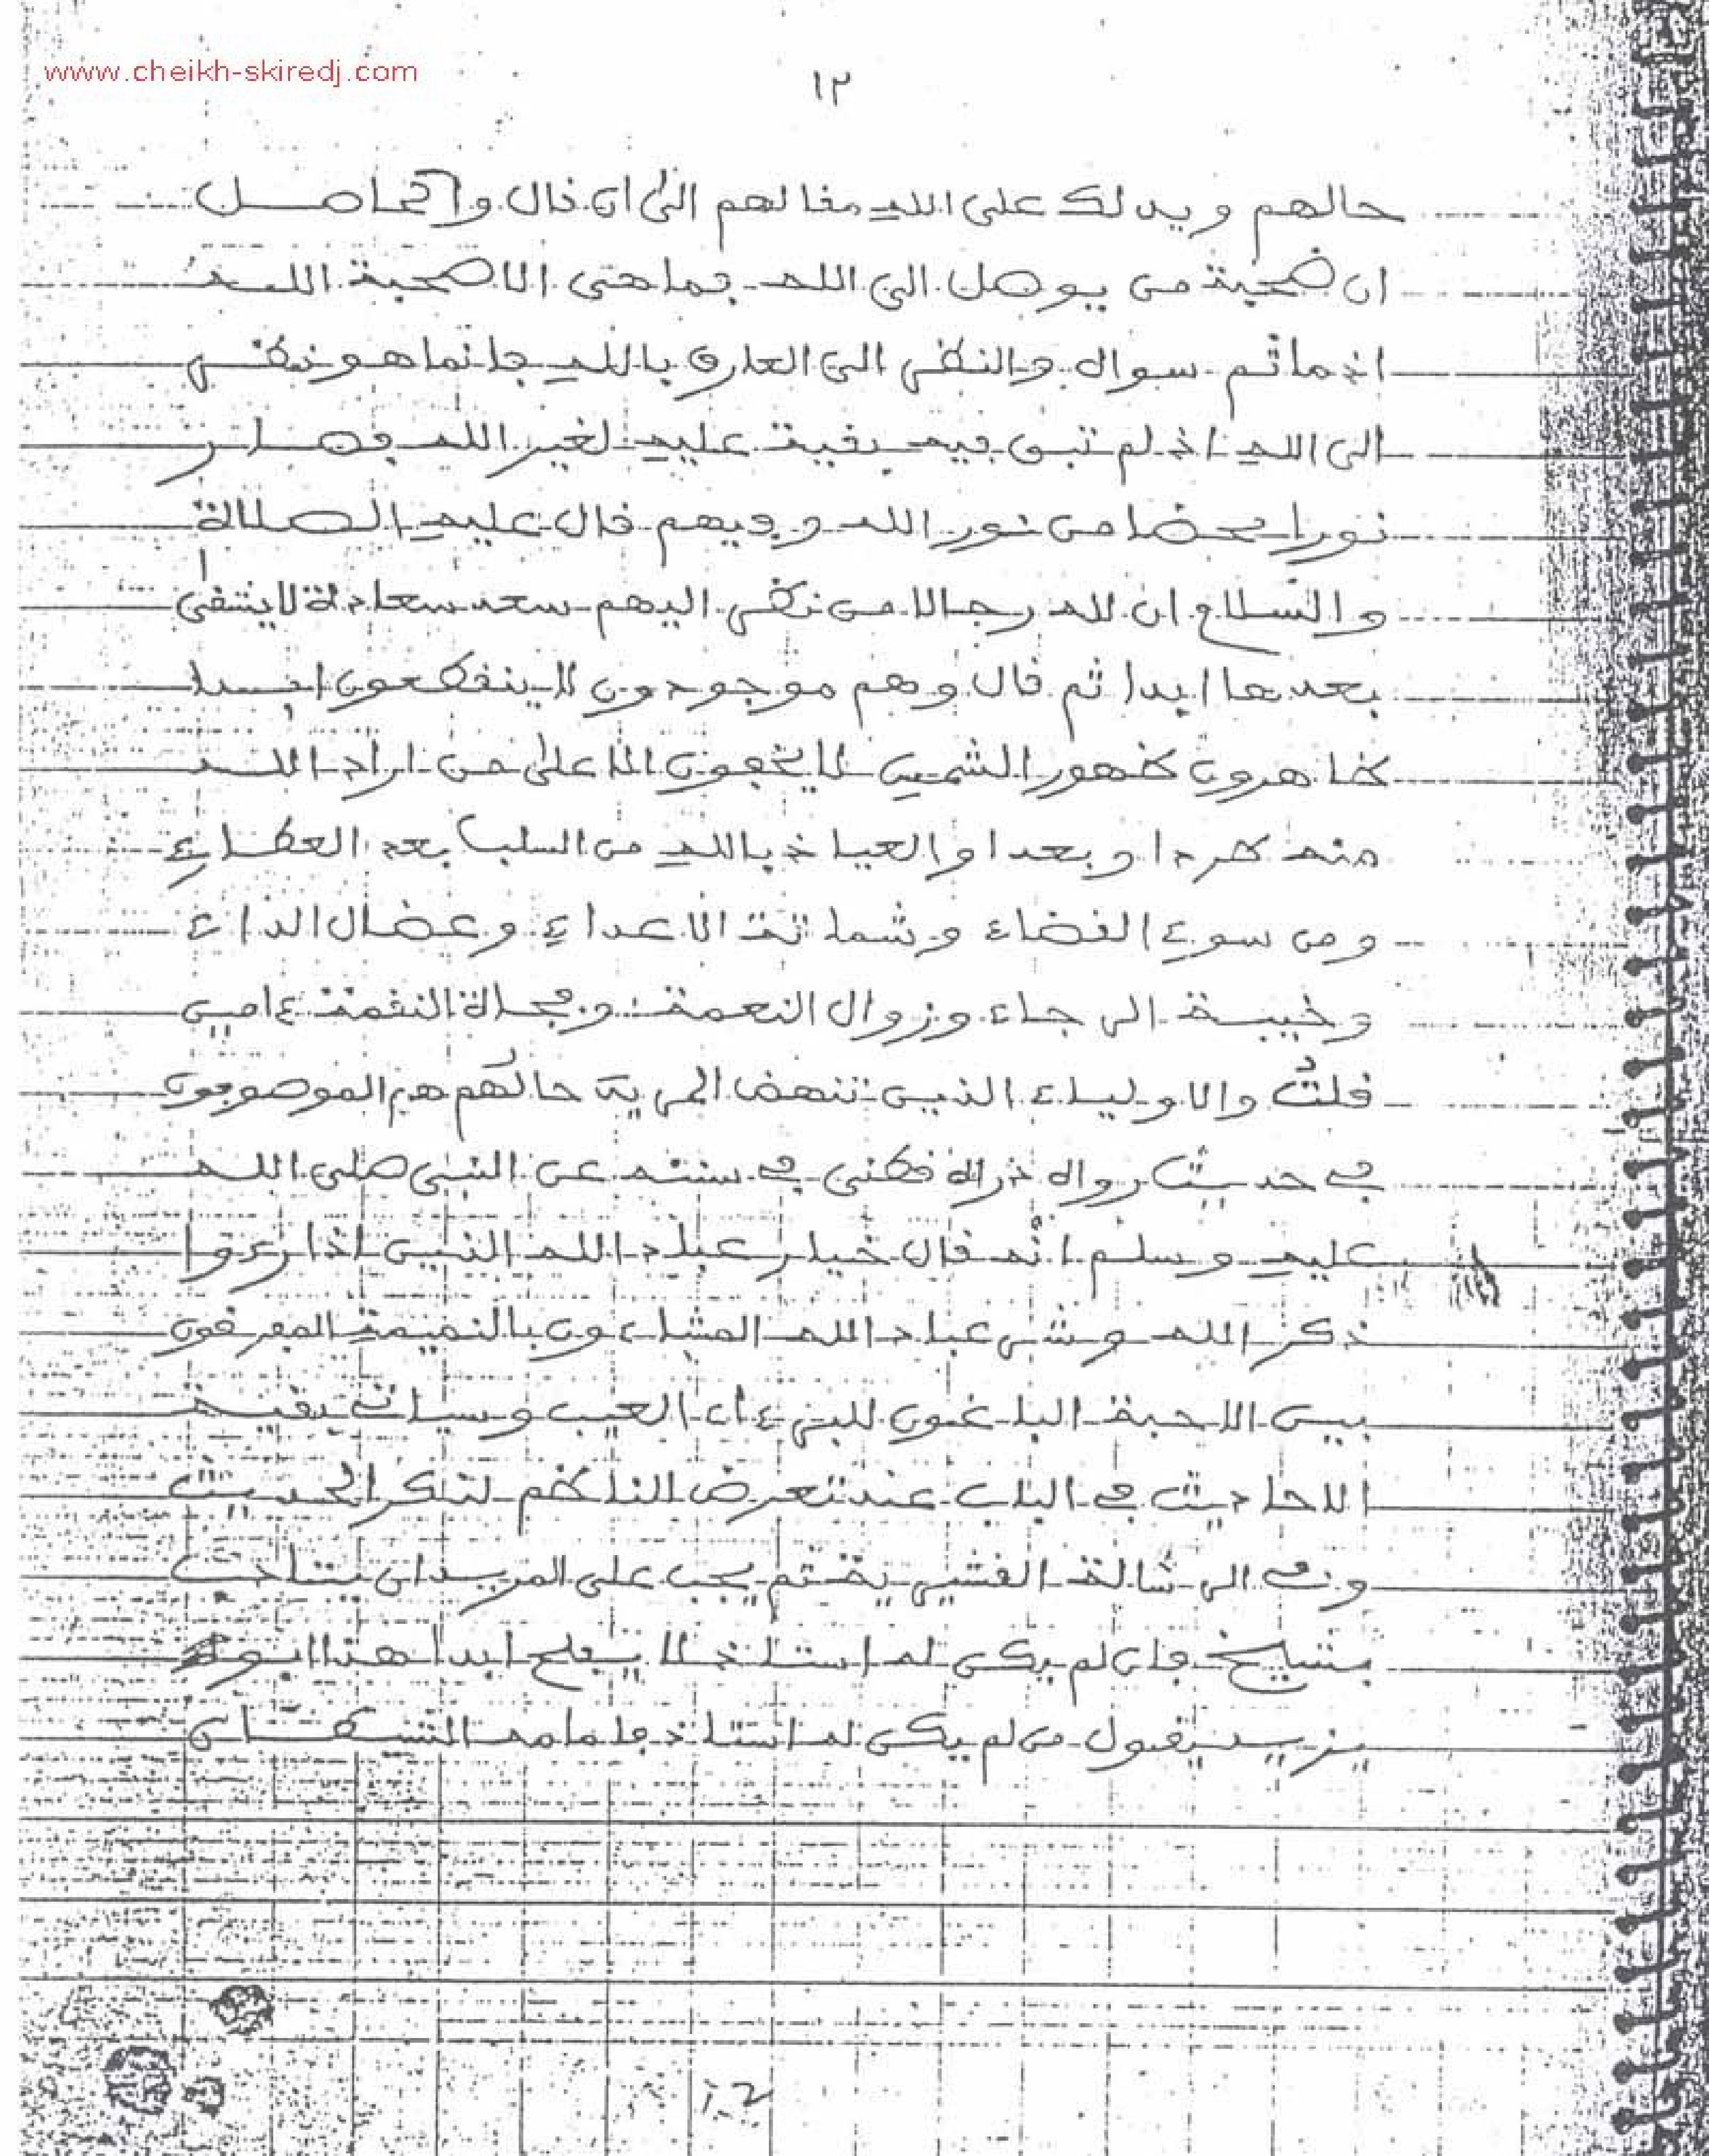 www.cheikh-skiredj.com
١٢
حالهم ويدلك على الله مقالهم الى ان قال والحاصل
ان صحبة من يوصل الى الله فما هى الا صحبة الله
اذ ما ثم سواه والنظر الى العارف بالله فانما هو نظر
الى الله اذ لم تبق فيه بقية عليه لغير الله فصار
نورا محضا من نور الله وفيهم قال عليه الصلاة
والسلام ان لله رجالا من نظر اليهم سعد سعادة لا يشقى
بعدها ابدا ثم قال وهم موجودون لا ينقطعون ابدا
ظاهرون ظهور الشمس لا يخفون الا على من اراد الله
منه طردا وبعدا والعياذ بالله من السلب بعد العطاء
ومن سوء القضاء وشماتت الاعداء وعضال الداء
وخيبة الرجاء وزوال النعمة وفجاة النقمة ءامين
قلت والاولياء الذين تنهض المريد حالهم هم الموصوفون
في حديث رواه الدارقطنى في سننه عن النبى صلى الله
عليه وسلم انه قال خيار عباد الله الذين اذا رءوا
ذكر الله وشر عباد الله المشاءون بالنميمة المفرقون
بين الاحبة الباغون للبرءاء العيب وسياتى بقية
الاحاديث في الباب عند تعرض الناظم لذكر الحديث
وفى الرسالة القشيرية ثم يجب على المريد ان يتادب
بشيخ فان لم يكن له استاذ لا يفلح ابدا هذا ابو
يزيد يقول من لم يكن له استاذ فامامه الشيطان
١٢